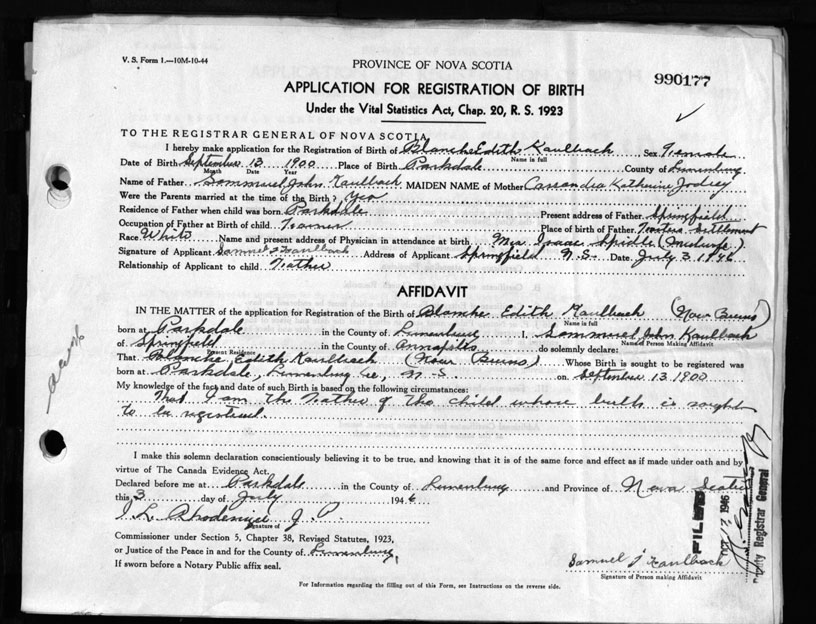 V. S. Form 1.—10M-10-44
PROVINCE OF NOVA SCOTIA
990177
APPLICATION FOR REGISTRATION OF BIRTH
Under the Vital Statistics Act, Chap. 20, R. S. 1923
TO THE REGISTRAR GENERAL OF NOVA SCOTIA
I hereby make application for the Registration of Birth of Blanche Edith Kaulbach Sex Female
Name in full
Date of Birth September 13 1900 Place of Birth Parkdale County of Lunenburg
Month Date Year
Name of Father Sammuel John Kaulbach MAIDEN NAME of Mother Cassandra Katherine Jodrey
Were the Parents married at the time of the Birth? Yes
Residence of Father when child was born Parkdale Present address of Father Springfield
Occupation of Father at Birth of child Farmer Place of birth of Father Settlement
Race White Name and present address of Physician in attendance at birth Mrs Isaac Spidle (Midwife)
Signature of Applicant Samuel J Kaulback Address of Applicant Springfield N.S. Date July 3 1946
Relationship of Applicant to child Father
AFFIDAVIT
IN THE MATTER of the application for Registration of the Birth of Blanche Edith Kaulbach (Now Burns)
Name in full
born at Parkdale in the County of Lunenburg I, Sammuel John Kaulbach
Name of Person Making Affidavit
of Springfield in the County of Annapolis do solemnly declare:
Present Residence
That Blanche Edith Kaulbach (Now Burns) Whose Birth is sought to be registered was
born at Parkdale, Lunenburg Co, N.S. on September 13 1900
My knowledge of the fact and date of such Birth is based on the following circumstances:
That I am the Father of the child whose birth is sought
to be registered.
I make this solemn declaration conscientiously believing it to be true, and knowing that it is of the same force and effect as if made under oath and by
virtue of The Canada Evidence Act.
Declared before me at Parkdale in the County of Lunenburg and Province of Nova Scotia
this 3 day of July 1946
J. P.
Signature of
Commissioner under Section 5, Chapter 38, Revised Statutes, 1923,
or Justice of the Peace in and for the County of Lunenburg,
If sworn before a Notary Public affix seal.
Samuel J Kaulback
Signature of Person making Affidavit
For Information regarding the filling out of this Form, see Instructions on the reverse side.
FILED
1946
Deputy Registrar General